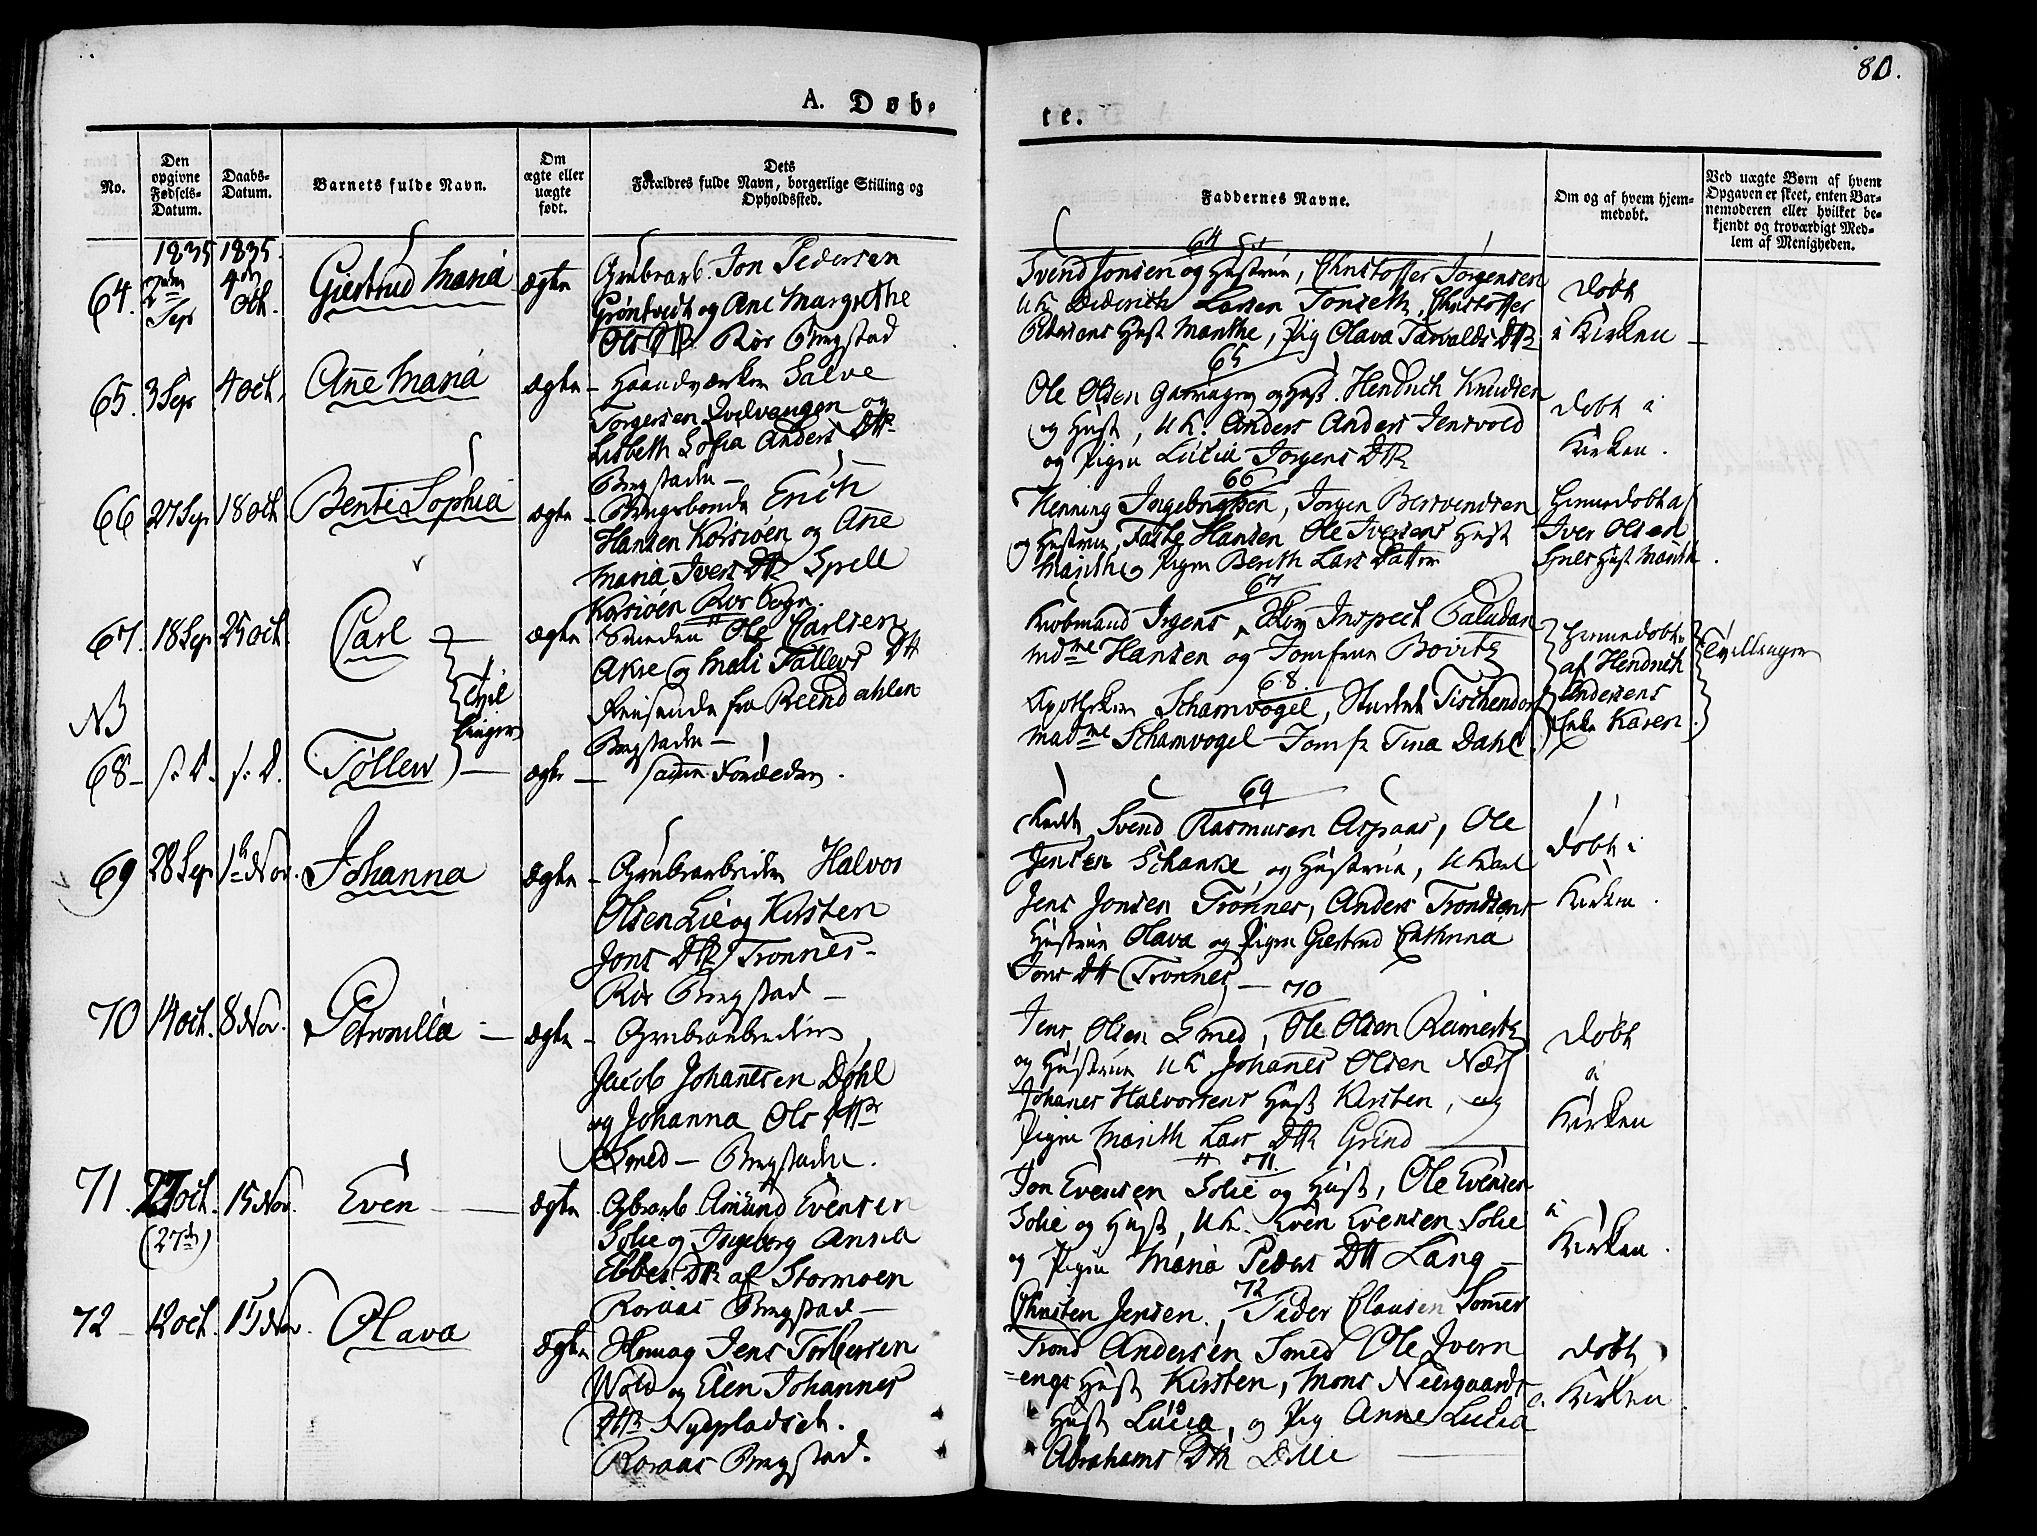 80.
A. Døb-
te.
No.
Den opgivne Fødsels-Datum.
Daabs-Datum.
Barnets fulde Navn.
Om ægte eller uægte født.
Dets Forældres fulde Navn, borgerlige Stilling og Opholdssted.
Faddernes Navne.
Om og af hvem hjem-medøbt.
Ved uægte Børn af hvem Opgaven er skeet, enten Bar-nemoderen eller hvilket be-kjendt og troværdigt Med-lem af Menigheden.
1835 1835.
64. Sep 4de Oct. Giertrud Maria ægte Grubearb. Jon Pedersen
Grøntvedt og Ane Margrethe
Ols Dtr Rør Bergstad
64
Svend Jonsen og Hustrue, Christoffer Jørgensen
UK Diderich Larsen Tonseth, Christoffer
Pedersens Hust Marithe, Pig Olava Tarvalds Dtr
døbt
i Kirken
65. 3 Sep 4 Oct. Ane Maria ægte Haandværker Salve
Torgersen Hvelvangen og
Lisbeth Sofia Anders Dtr
Bergstaden
65
Ole Olsen og Hust. Hendrich Knudsen
og Hust, UK. Anders Anders Jensvold
og Pigen Lucia Jørgens Dtr
døbt i
Kirken.
66 27 Sep 18 Oct Bente Sophia ægte Bergsbonde Erich
Hansen Korsiøen og Ane
Maria Ivers Dtr Spell
Korsiøen Rør Sogn.
66
Henning Ingebrigtsen, Jørgen Berventsen
og Hustrue, Faste Hansen Ole Iversens Hust
Marithe, Pigen Bereth Lars Datter
hiemedøbt af
Iver Olsen
Hust Marith.
67. 18 Sep 25 Oct. Carl ægte Smeden Ole Carlsen
Akre og Mali Tollevs Dtr
Reisende fra Reendahlen
Bergstaden
67
Kiøbmand Irgens, Skov Inspect Paludan
Mdme Hansen og Jomfrue Bovitz
hiemedøbt
af Hendrich
Andersens
Enke Karen.
Tvillinger
NB
Tvillinger
68 s. D. s. D. Tøllev ægte samme Forældre.
68.
Apotheker Schamvogel, Student Tischendorf
Madme Schamvogel Jomf Tina Dahl.
69 28 Sep 1te Nov. Johanna ægte Grubearbeider Halvor
Olsen Lie og Kirsten
Jons Dtr Trønnes
Rør Bergstad
69
Svend Rasmusen Aspaas, Ole
Jensen Schanke og Hustrue, U Karl
Jens Jonsen Trønnes, Anders Trondsens
Hustrue Olava og Pigen Giertrud Cathrina
Jons Dtr Trønnes
døbt i
Kirken.
70 14 Oct. 8 Nov. Petronilla ægte Grubearbeider
Jacob Johannesen Døhl
og Johanna Ols Dtr
Smed Bergstaden.
70
Jens Olsen Smed, Ole Olsen Reimertz
og Hustrue UK Johannes Olsen
Johanes Halvorsens Hust Kirsten, og
Pigen Marith Lars Dtr Grind
døbt
i
Kirken
71. 27 Oct. (27de) 15 Nov. Even ægte Gbrarb. Amund Evensen
Solie og Ingeborg Anna
Ebbes Dtr af Stormoen
Roraas Bergstad
71.
Jon Evensen Solie og Hust, Ole Evensen
Solie og Hust, UK. Even Evensen Solie
og Pigen Maria Peders Dtr Lang
i
Kirken.
72 12 Oct. 15 Nov. Olava ægte Jens Torbersen
Wold og Elen Johannes
Dtr Nyepladsch.
Roraas Bergstad.
72
Christen Jensen., Peder Clausen Somer
Trond Andersen Smed Ole Ivern
engs Hust Kirsten, Mons Neergaards
Hust Lucia, og Pig Anne Lucia
Abrahams Dtr Dille
døbt
i Kirken.